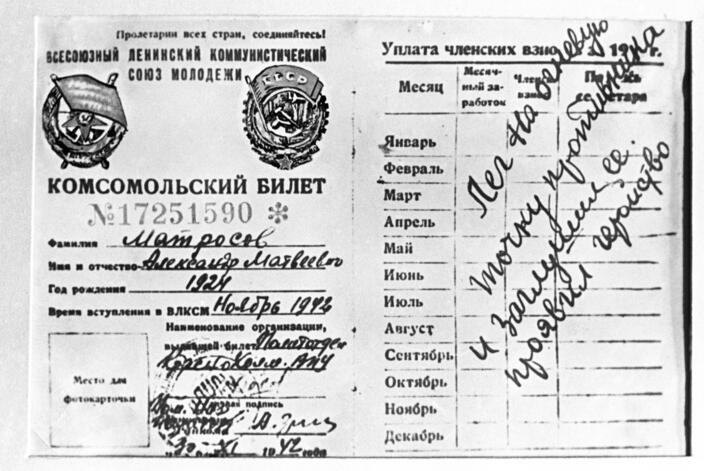 Пролетарии всех стран, соединяйтесь!
ВСЕСОЮЗНЫЙ ЛЕНИНСКИЙ КОММУНИСТИЧЕСКИЙ
СОЮЗ МОЛОДЕЖИ
СССР
КОМСОМОЛЬСКИЙ БИЛЕТ
№17251590 *
Фамилия Матросов
Имя и отчество Александр Матвеевич
Год рождения 1924
Время вступления в ВЛКСМ Ноябрь 1942
Наименование организации,
выдавшей билет Политотдел
Место для
фотокарточки
подпись
30 XI 1942 года
Уплата членских взносов 194 г.
Месяц
Месяч-
ный за-
работок
Член.
взнос
Подпись
секретаря
Январь
Февраль
Март
Апрель
Май
Июнь
Июль
Август
Сентябрь
Октябрь
Ноябрь
Декабрь
Лег на огневую
точку противника
и заглушил ее.
проявил геройство